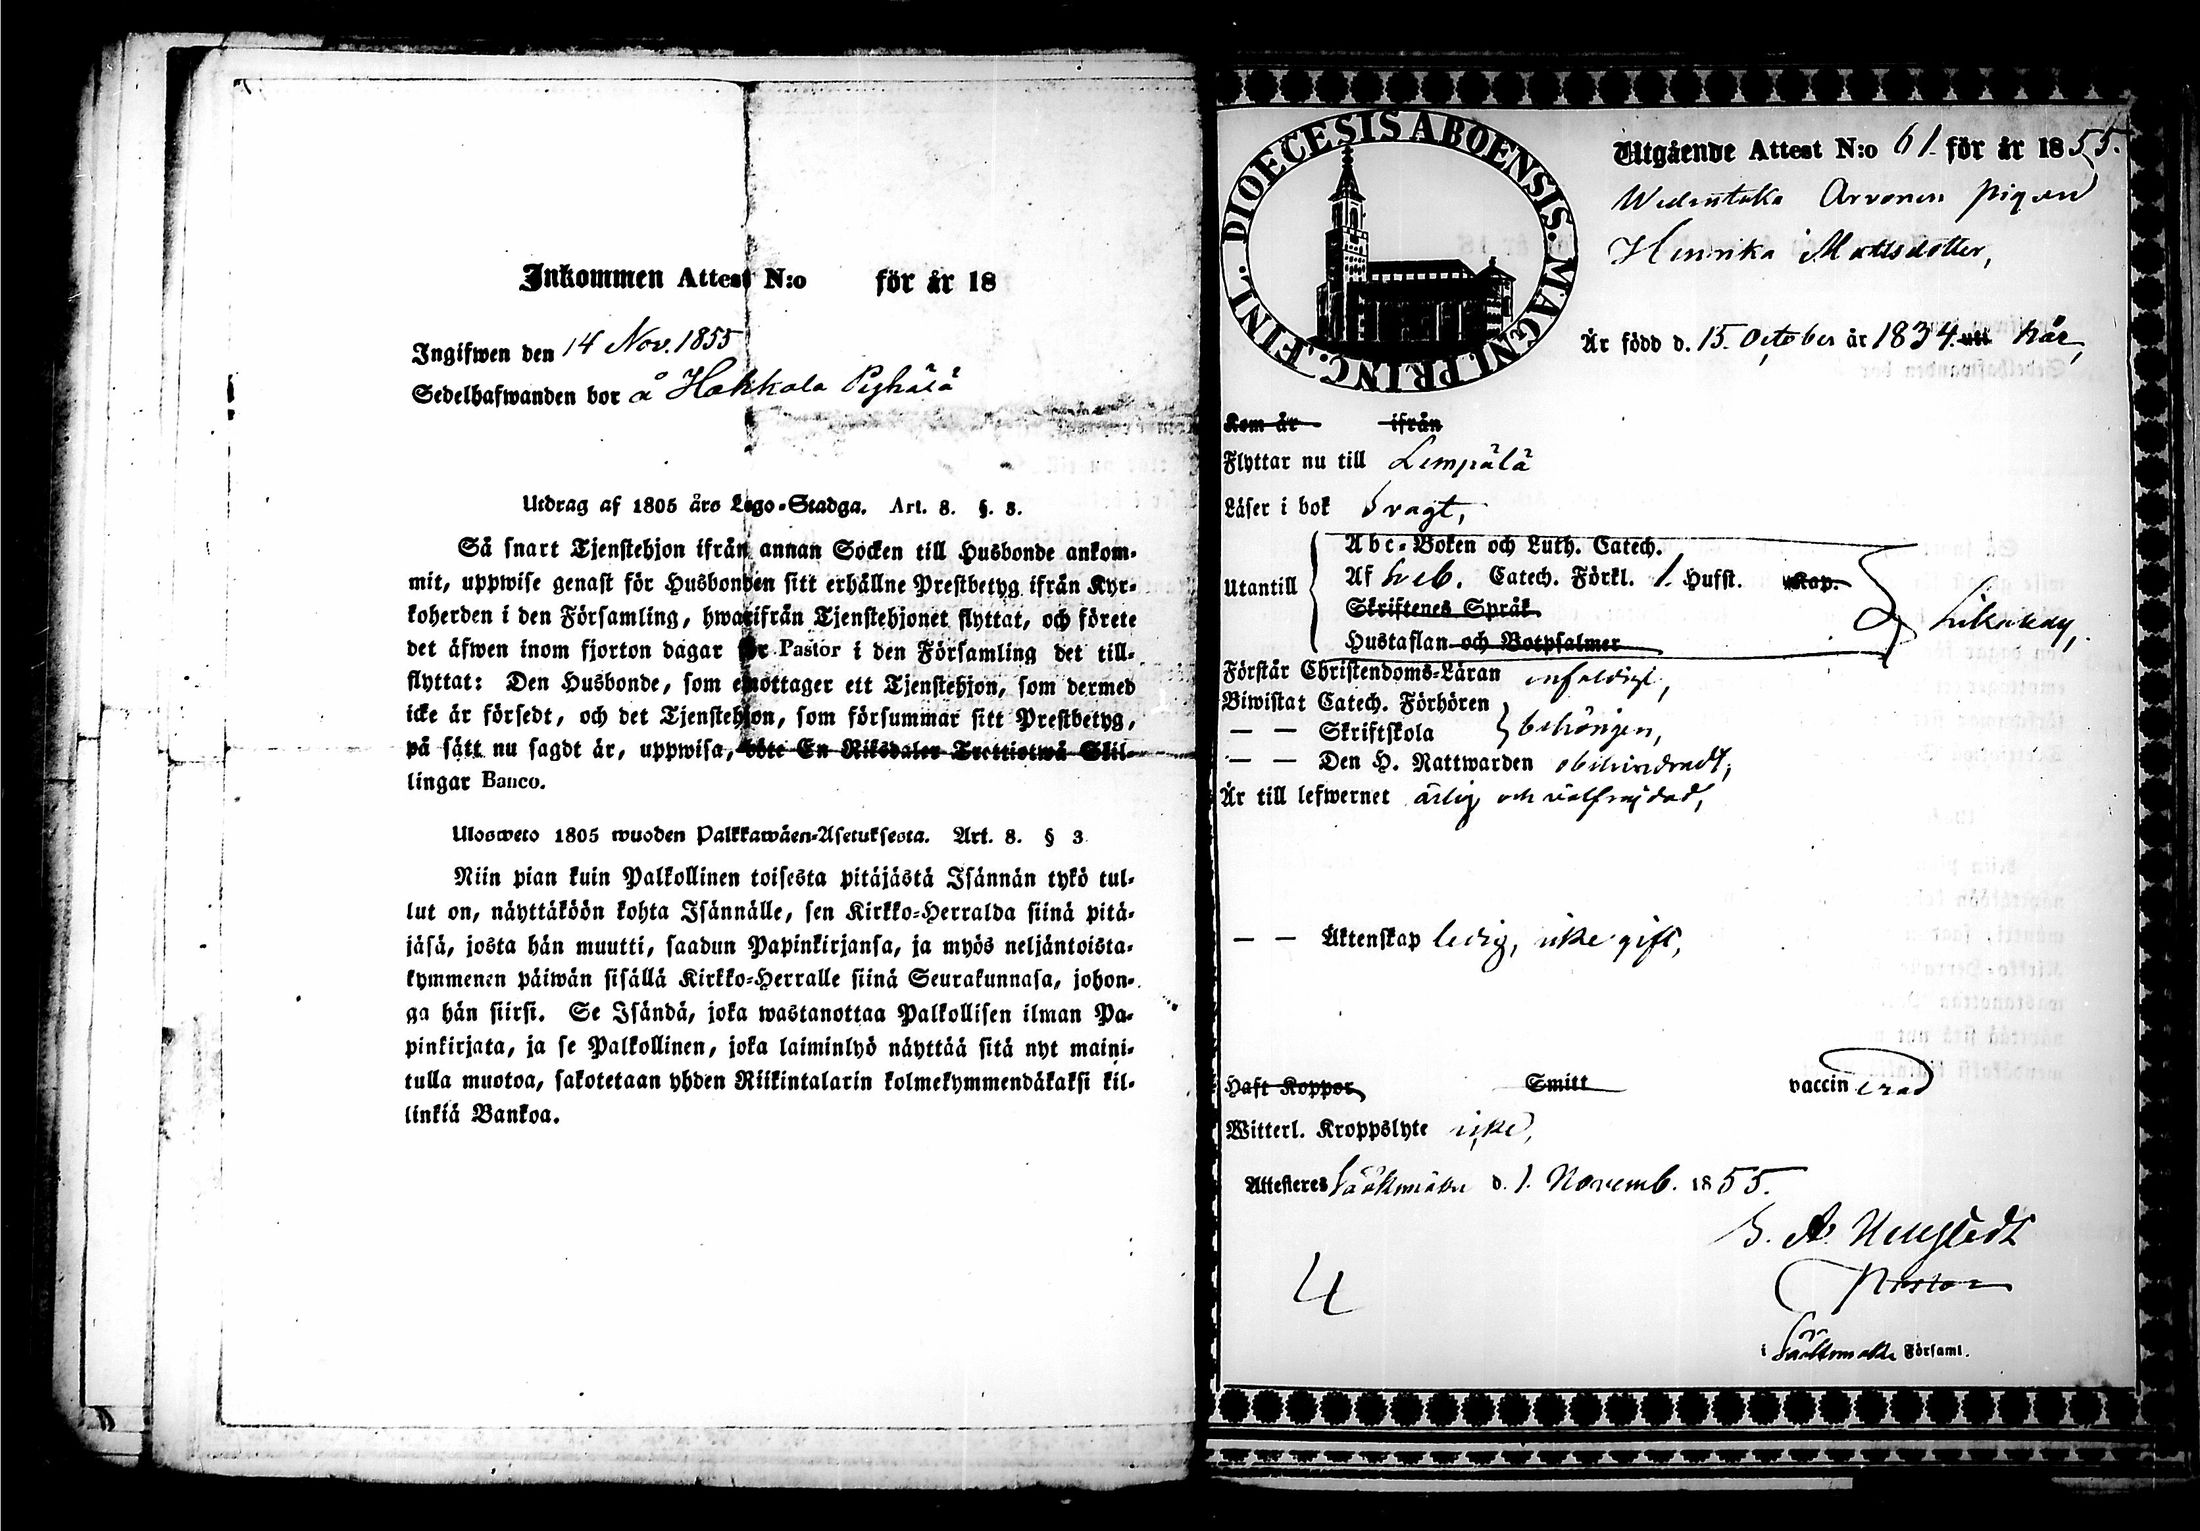 Inkommen Attest N:o för år 18
Ingifwen den 14 Nov. 1855
Sedelhafwanden bor å Hakkala Pyhälä
Utdrag af 1805 års Lego-Stadga. Art. 8. §. 3.
Så snart Tjenstehjon ifrån annan Socken till Husbonde ankom-
mit, uppwise genast för Husbonden sitt erhållne Prestbetyg ifrån Kyr-
koherden i den Församling, hwarifrån Tjenstehjonet flyttat, och förete
det äfwen inom fjorton dagar för Pastor i den Församling det till-
flyttat: Den Husbonde, som emottager ett Tjenstehjon, som dermed
icke är försedt, och det Tjenstehjon, som försummar sitt Prestbetyg,
på sätt nu sagdt är, uppwisa, böte En Riksdaler Trettiotwå Skil-
lingar Banco.
Ulosweto 1805 wuoden Palkkawäen-Asetuksesta. Art. 8. § 3
Niin pian kuin Palkollinen toisesta pitäjästä Isännän tykö tul-
lut on, näyttäköön kohta Isännälle, sen Kirkko-Herralda siinä pitä-
jäsä, josta hän muutti, saadun Papinkirjansa, ja myös neljäntoista-
kymmenen päiwän sisällä Kirkko-Herralle siinä Seurakunnasa, johon-
ga hän siirsi. Se Isändä, joka wastanottaa Palkollisen ilman Pa-
pinkirjata, ja se Palkollinen, joka laiminlyö näyttää sitä nyt maini-
tulla muotoa, sakotetaan yhden Riikintalarin kolmekymmendäkaksi kil-
linkiä Bankoa.
DIOECESIS ABOENSIS. MAGNI. PRINC. FINL.
Utgående Attest N:o 61. för år 1855.
Arvonen pigan
Henrika Mattsdotter,
Är född d. 15. October år 1834. uti här,
Kom år ifrån
Flyttar nu till Lempälä
Läser i bok svagt,
Utantill
Abc-Boken och Luth. Catech.
Af Sveb. Catech. Förkl. 1. Hufst. Kap.
Skriftenes Språk
Hustaflan och Botpsalmer
Likaledes,
Förstår Christendoms-Läran enfaldigt,
Biwistat Catech. Förhören
— — Skriftskola behörigen,
— — Den H. Nattwarden obehindradt,
Är till lefwernet ärlig och välfrejdad,
— — Äktenskap ledig, icke gift,
Haft Koppor Smitt vaccinerad
Witterl. Kroppslyte icke,
Attesteras Sääksmäki d. 1. Novemb. 1855.
Pastor
4
i Sääksmäki Församl.